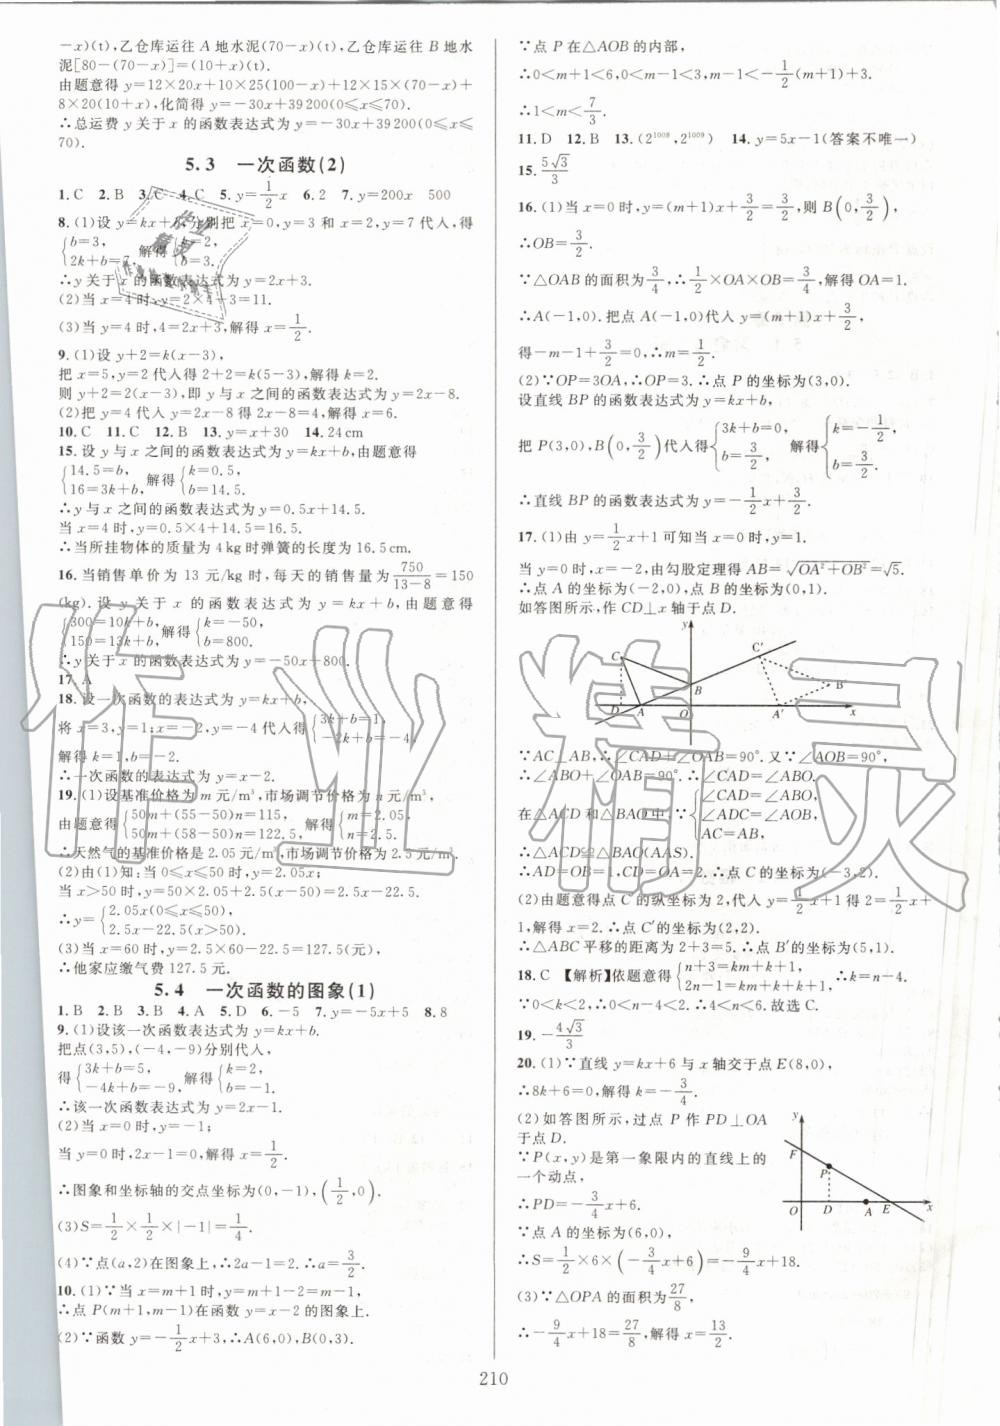 －x)(t),乙仓库运往 A 地水泥(70－x)(t),乙仓库运往 B 地水
泥[80－(70－x)]＝(10＋x)(t).
由题意得 y＝12×20x＋10×25(100－x)＋12×15×(70－x)＋
8×20(10＋x),化简得 y＝－30x＋39200(0≤x≤70).
∴总运费 y 关于 x 的函数表达式为 y＝－30x＋39200(0≤x≤
70).
5.3 一次函数(2)
1.C 2.B 3.C 4.C 5.y＝1/2x 6.2 7.y＝200x 500
8.(1)设 y＝kx＋b,分别把 x＝0,y＝3 和 x＝2,y＝7 代人,得
{b＝3, 2k＋b＝7, 解得{k＝2, b＝3.
∴y 关于 x 的函数表达式为 y＝2x＋3.
(2)当 x＝4 时,y＝2×4＋3＝11.
(3)当 y＝4 时,4＝2x＋3,解得 x＝1/2.
9.(1)设 y＋2＝k(x－3),
把 x＝5,y＝2 代入得 2＋2＝k(5－3),解得 k＝2.
则 y＋2＝2(x－3),即 y 与 x 之间的函数表达式为 y＝2x－8.
(2)把 y＝4 代人 y＝2x－8 得 2x－8＝4,解得 x＝6.
10.C 11.C 12.B 13.y＝x＋30 14.24cm
15.设 y 与 x 之间的函数表达式为 y＝kx＋b,由题意得
{14.5＝b, 16＝3k＋b, 解得{k＝0.5, b＝14.5.
∴y 与 x 之间的函数表达式为 y＝0.5x＋14.5.
当 x＝4 时,y＝0.5×4＋14.5＝16.5.
∴当所挂物体的质量为 4kg 时弹簧的长度为 16.5cm.
16.当销售单价为 13 元/kg 时,每天的销售量为750/(13－8)＝150
(kg).设 y 关于 x 的函数表达式为 y＝kx＋b,由题意得
{300＝10k＋b, 150＝13k＋b, 解得{k＝－50, b＝800.
∴y 关于 x 的函数表达式为 y＝－50x＋800.
17.A
18.设一次函数的表达式为 y＝kx＋b,
将 x＝3,y＝1;x＝－2,y＝－4 代人得{3k＋b＝1, －2k＋b＝－4.
解得 k＝1,b＝－2.
∴一次函数的表达式为 y＝x－2.
19.(1)设基准价格为 m 元/m³,市场调节价格为 n 元/m³,
由题意得{50m＋(55－50)n＝115, 50m＋(58－50)n＝122.5, 解得{m＝2.05, n＝2.5.
∴天然气的基准价格是 2.05 元/m³,市场调节价格为 2.5 元/m³.
(2)由(1)知:当 0≤x≤50 时,y＝2.05x;
当 x＞50 时,y＝50×2.05＋2.5(x－50)＝2.5x－22.5.
∴y＝{2.05x(0≤x≤50), 2.5x－22.5(x＞50).
(3)当 x＝60 时,y＝2.5×60－22.5＝127.5(元),
∴他家应缴气费 127.5 元.
5.4 一次函数的图象(1)
1.B 2.B 3.B 4.A 5.D 6.－5 7.y＝－5x＋5 8.8
9.(1)设该一次函数表达式为 y＝kx＋b.
把点(3,5),(－4,－9)分别代人,
得{3k＋b＝5, －4k＋b＝－9, 解得{k＝2, b＝－1.
∴该一次函数表达式为 y＝2x－1.
(2)当 x＝0 时,y＝－1;
当 y＝0 时,2x－1＝0,解得 x＝1/2.
∴图象和坐标轴的交点坐标为(0,－1),(1/2,0).
(3)S＝1/2×1/2×|－1|＝1/4.
(4)∵点(a,2)在图象上,∴2a－1＝2.∴a＝3/2.
10.(1)∵当 x＝m＋1 时,y＝m＋1－2＝m－1,
∴点 P(m＋1,m－1)在函数 y＝x－2 的图象上.
(2)∵函数 y＝－1/2x＋3,∴A(6,0),B(0,3).
∵点 P 在△AOB 的内部,
∴0＜m＋1＜6,0＜m－1＜3,m－1＜－1/2(m＋1)＋3.
∴1＜m＜7/3.
11.D 12.B 13.(2^1008,2^1009) 14.y＝5x－1(答案不唯一)
15.5√3/3
16.(1)当 x＝0 时,y＝(m＋1)x＋3/2＝3/2,则 B(0,3/2),
∴OB＝3/2.
∵△OAB 的面积为3/4,∴1/2×OA×OB＝3/4,解得 OA＝1.
∴A(－1,0).把点 A(－1,0)代人 y＝(m＋1)x＋3/2,
得－m－1＋3/2＝0.∴m＝1/2.
(2)∵OP＝3OA,∴OP＝3.∴点 P 的坐标为(3,0).
设直线 BP 的函数表达式为 y＝kx＋b,
把 P(3,0),B(0,3/2)代人得{3k＋b＝0, b＝3/2, 解得{k＝－1/2, b＝3/2.
∴直线 BP 的函数表达式为 y＝－1/2x＋3/2.
17.(1)由 y＝1/2x＋1 可知当 x＝0 时,y＝1.
当 y＝0 时,x＝－2,由勾股定理得 AB＝√(OA²＋OB²)＝√5.
∴点 A 的坐标为(－2,0),点 B 的坐标为(0,1).
如答图所示,作 CD⊥x 轴于点 D.
y
C C′
B B′
D A O A′ x
∵AC⊥AB,∴∠CAD＋∠OAB＝90°.又∵∠AOB＝90°,
∴∠ABO＋∠OAB＝90°.∴∠CAD＝∠ABO.
在△ACD 和△BAO 中,∵{∠CAD＝∠ABO, ∠ADC＝∠AOB, AC＝AB,
∴△ACD≌△BAO(AAS).
∴AD＝OB＝1,CD＝OA＝2.∴点 C 的坐标为(－3,2).
(2)由题意得点 C′的纵坐标为 2,代人 y＝1/2x＋1 得 2＝1/2x＋
1,解得 x＝2.∴点 C′的坐标为(2,2).
∴△ABC 平移的距离为 2＋3＝5.∴点 B′的坐标为(5,1).
18.C 【解析】依题意得{n＋3＝km＋k＋1, 2n－1＝km＋k＋k＋1, ∴k＝n－4.
∵0＜k＜2,∴0＜n－4＜2.∴4＜n＜6.故选C.
19.－4√3/3
20.(1)∵直线 y＝kx＋6 与 x 轴交于点 E(8,0),
∴8k＋6＝0,解得 k＝－3/4.
(2)如答图所示,过点 P 作 PD⊥OA
于点 D.
∵P(x,y)是第一象限内的直线上的
一个动点,
∴PD＝－3/4x＋6.
∵点 A 的坐标为(6,0),
∴S＝1/2×6×(－3/4x＋6)＝－9/4x＋18.
y
F
P
O D A E x
(3)∵△OPA 的面积为27/8,
∴－9/4x＋18＝27/8,解得 x＝13/2.
210
作业精灵